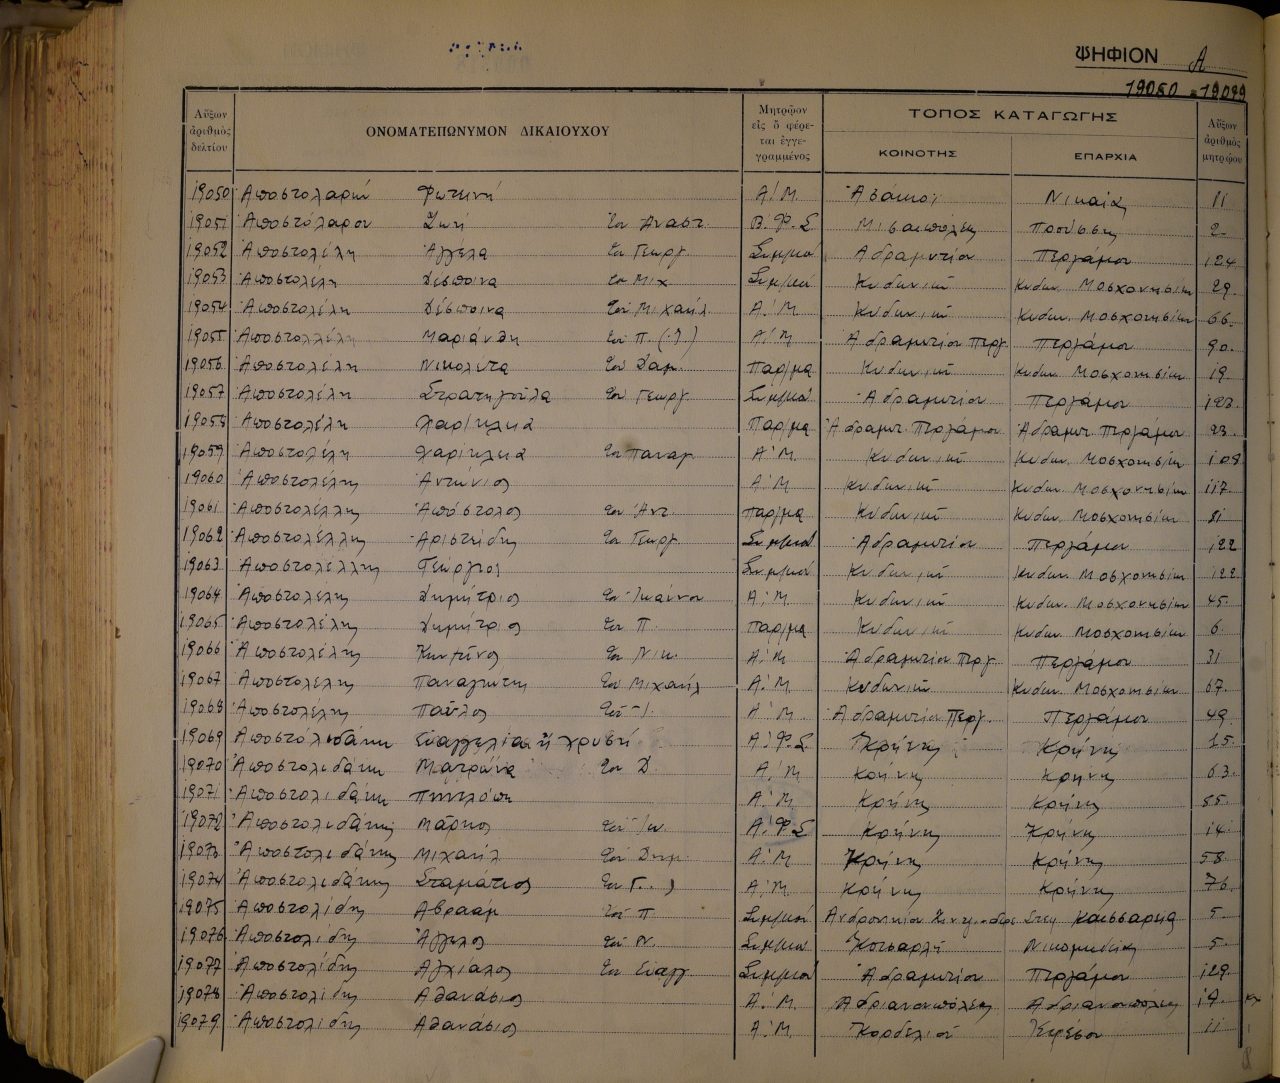 ΨΗΦΙΟΝ Α
19050 = 19099
Αὔξων ἀριθμὸς δελτίου ΟΝΟΜΑΤΕΠΩΝΥΜΟΝ ΔΙΚΑΙΟΥΧΟΥ Μητρῷον εἰς ὃ φέρεται ἐγγεγραμμένος ΤΟΠΟΣ ΚΑΤΑΓΩΓΗΣ Αὔξων ἀριθμὸς μητρῴου
ΚΟΙΝΟΤΗΣ ΕΠΑΡΧΙΑ
19050 Ἀποστολαρῆ Φωτεινή Α.Μ. Νικαίας 11
19051 Ἀποστόλαρου Ζωή του Αναστ. Β.Φ.Σ. Μισαιπόλεως Προύσσης 2
19052 Ἀποστολέλη Ἀγγελα του Γεωργ. Συμ/κοῦ Αδραμυτίου Περγάμου 124
19053 Ἀποστολέλη Δέσποινα του Μιχ Συμ/κοῦ Κυδωνιῶν Κυδων. Μοσχονησίων 29
19054 Ἀποστολέλη Δέσποινα τοῦ Μιχαήλ Α.Μ. Κυδωνιῶν Κυδων. Μοσχονησίων 66
19055 Ἀποστολλέλη Μαριάνθη τοῦ Π. Α.Μ. Αδραμυτίου Περγ. Περγάμου 90
19056 Ἀποστολέλη Νικολέτα του Δαμ. Παρ/μα Κυδωνιῶν Κυδων. Μοσχονησίων 19
19057 Ἀποστολέλη Στρατηγούλα του Γεωργ. Συμ/κοῦ Αδραμυτίου Περγάμου 123
19058 Ἀποστολέλη Χαρίκλεια Παρ/μα Ἀδραμυτ. Περγάμου Ἀδραμυτ. Περγάμου 23
19059 Ἀποστολέλη Χαρίκλεια του Παναγ. Α.Μ. Κυδωνιῶν Κυδων. Μοσχονησίων 108
19060 Ἀποστολέλης Ἀντώνιος Α.Μ. Κυδωνιῶν Κυδων. Μοσχονησίων 117
19061 Ἀποστολέλλης Ἀπόστολος του Ἀντ. Παρ/μα Κυδωνιῶν Κυδων. Μοσχονησίων 51
19062 Ἀποστολέλλης Ἀριστείδης του Γεωργ. Συμ/κοῦ Αδραμυτίου Περγάμου 122
19063 Ἀποστολέλλης Γεώργιος Συμ/κοῦ Κυδωνιῶν Κυδων. Μοσχονησίων 122
19064 Ἀποστολέλης Δημήτριος του Ἰωάννου Α.Μ. Κυδωνιῶν Κυδων. Μοσχονησίων 45
19065 Ἀποστολέλης Δημήτριος του Π. Παρ/μα Κυδωνιῶν Κυδων. Μοσχονησίων 6
19066 Ἀποστολέλης Κων/τῖνος του Νικ. Α.Μ. Αδραμυτίου Περγ. Περγάμου 31
19067 Ἀποστολέλης Παναγιώτης του Μιχαήλ Α.Μ. Κυδωνιῶν Κυδων. Μοσχονησίων 67
19068 Ἀποστολέλης Παῦλος τοῦ Ἰ. Α.Μ. Αδραμυτίου Περγ. Περγάμου 49
19069 Ἀποστολιδάκη Εὐαγγελία ἢ Χρυσή Α.Φ.Σ. Κρήνης Κρήνης 15
19070 Ἀποστολιδάκη Ματρώνα του Δ. Α.Μ. Κρήνης Κρήνης 63
19071 Ἀποστολιδάκη Πηνελόπη Α.Μ. Κρήνης Κρήνης 55
19072 Ἀποστολιδάκης Μᾶρκος τοῦ Ἰω. Α.Φ.Σ. Κρήνης Κρήνης 14
19073 Ἀποστολιδάκης Μιχαήλ τοῦ Δημ. Α.Μ. Κρήνης Κρήνης 58
19074 Ἀποστολιδάκης Σταμάτιος του Γ. Α.Μ. Κρήνης Κρήνης 76
19075 Ἀποστολίδης Αβραάμ τοῦ Π. Συμ/κοῦ Ανδρονικίου Καισσαρεία 5
19076 Ἀποστολίδης Ἄγγελος τοῦ Ν. Συμ/κοῦ Νικομηδείας 5
19077 Ἀποστολίδης Αγχίαλος του Εὐαγγ. Συμ/κοῦ Ἀδραμυτίου Περγάμου 129
19078 Ἀποστολίδης Αθανάσιος Α.Μ. Αδριανουπόλεως Αδριανουπόλεως 19
19079 Ἀποστολίδης Αθανάσιος Α.Μ. Κορδελιοῦ Ἐφέσου 11